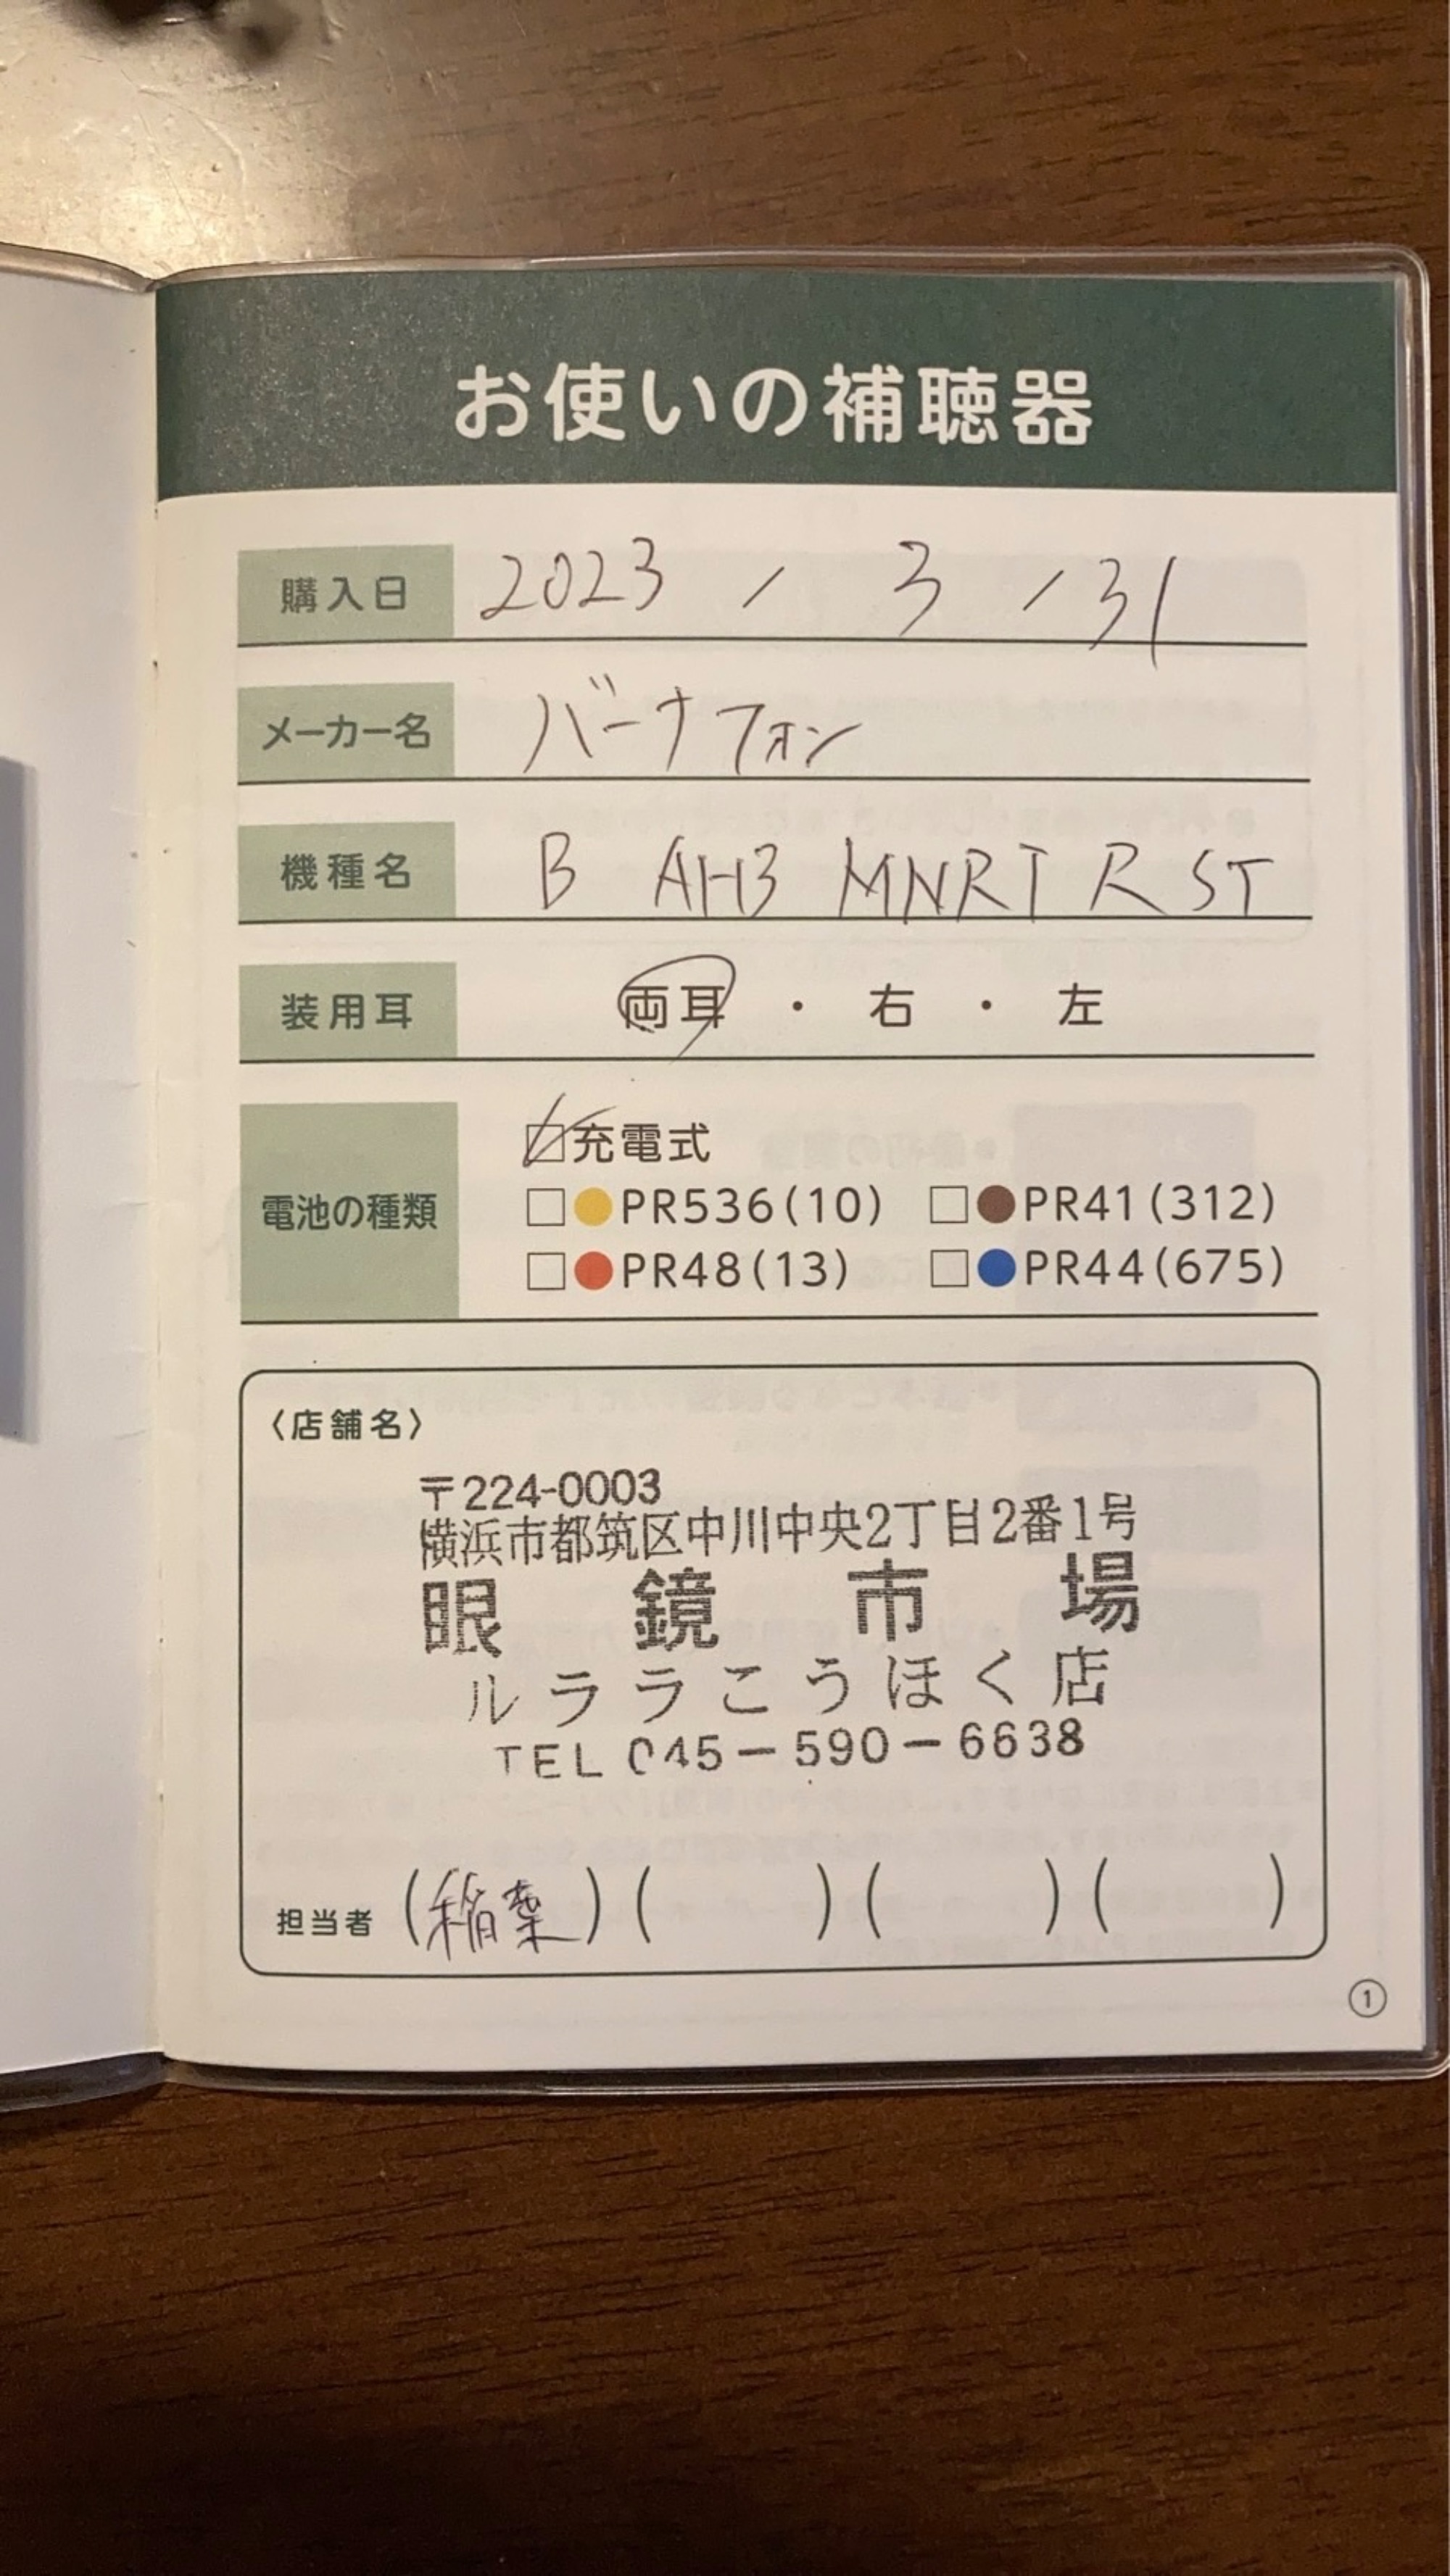 お使いの補聴器
購入日 2023 / 3 / 31
メーカー名 バーナフォン
機種名 B AH3 MNRT R ST
装用耳 両耳 ・ 右 ・ 左
電池の種類
☑充電式
□●PR536(10) □●PR41(312)
□●PR48(13) □●PR44(675)
〈店舗名〉
〒224-0003
横浜市都筑区中川中央2丁目2番1号
眼鏡市場
ルララこうほく店
TEL 045-590-6638
担当者 (稲葉)( )( )( )
①